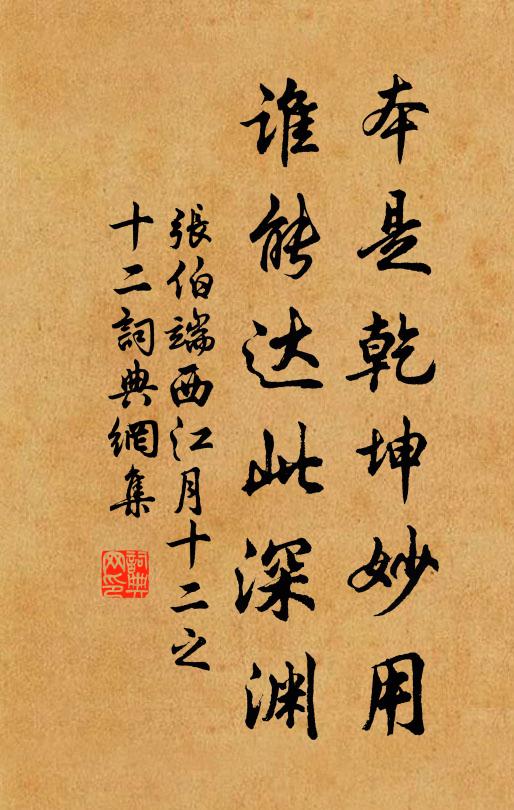 本是乾坤妙用
谁能达此深渊
張伯端西江月十二之
十二詞典網集
詞典网印